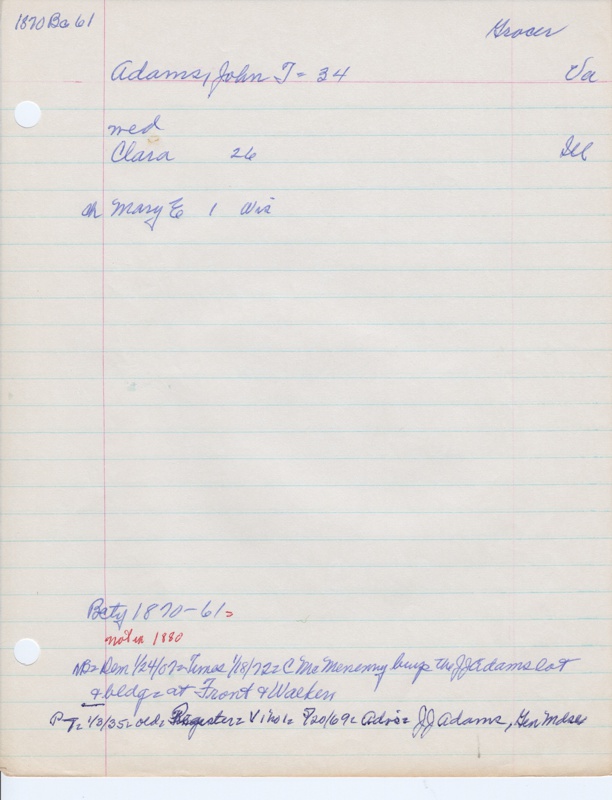 1870 Bc 61
Grocer
Adams, John T = 34 Va
wed
Clara 26 Ill
ch Mary E 1 Wis
Bcty 1870-61=
not in 1880
NB= Dem 1/24/07= Times 1/18/72= C McMenemy buys the JJ Adams lot
& bldg= at Front & Walker
P T= 1/3/35= old= Register= V1 no1= 7/20/69= Adv= J J Adams, Gen Mdse